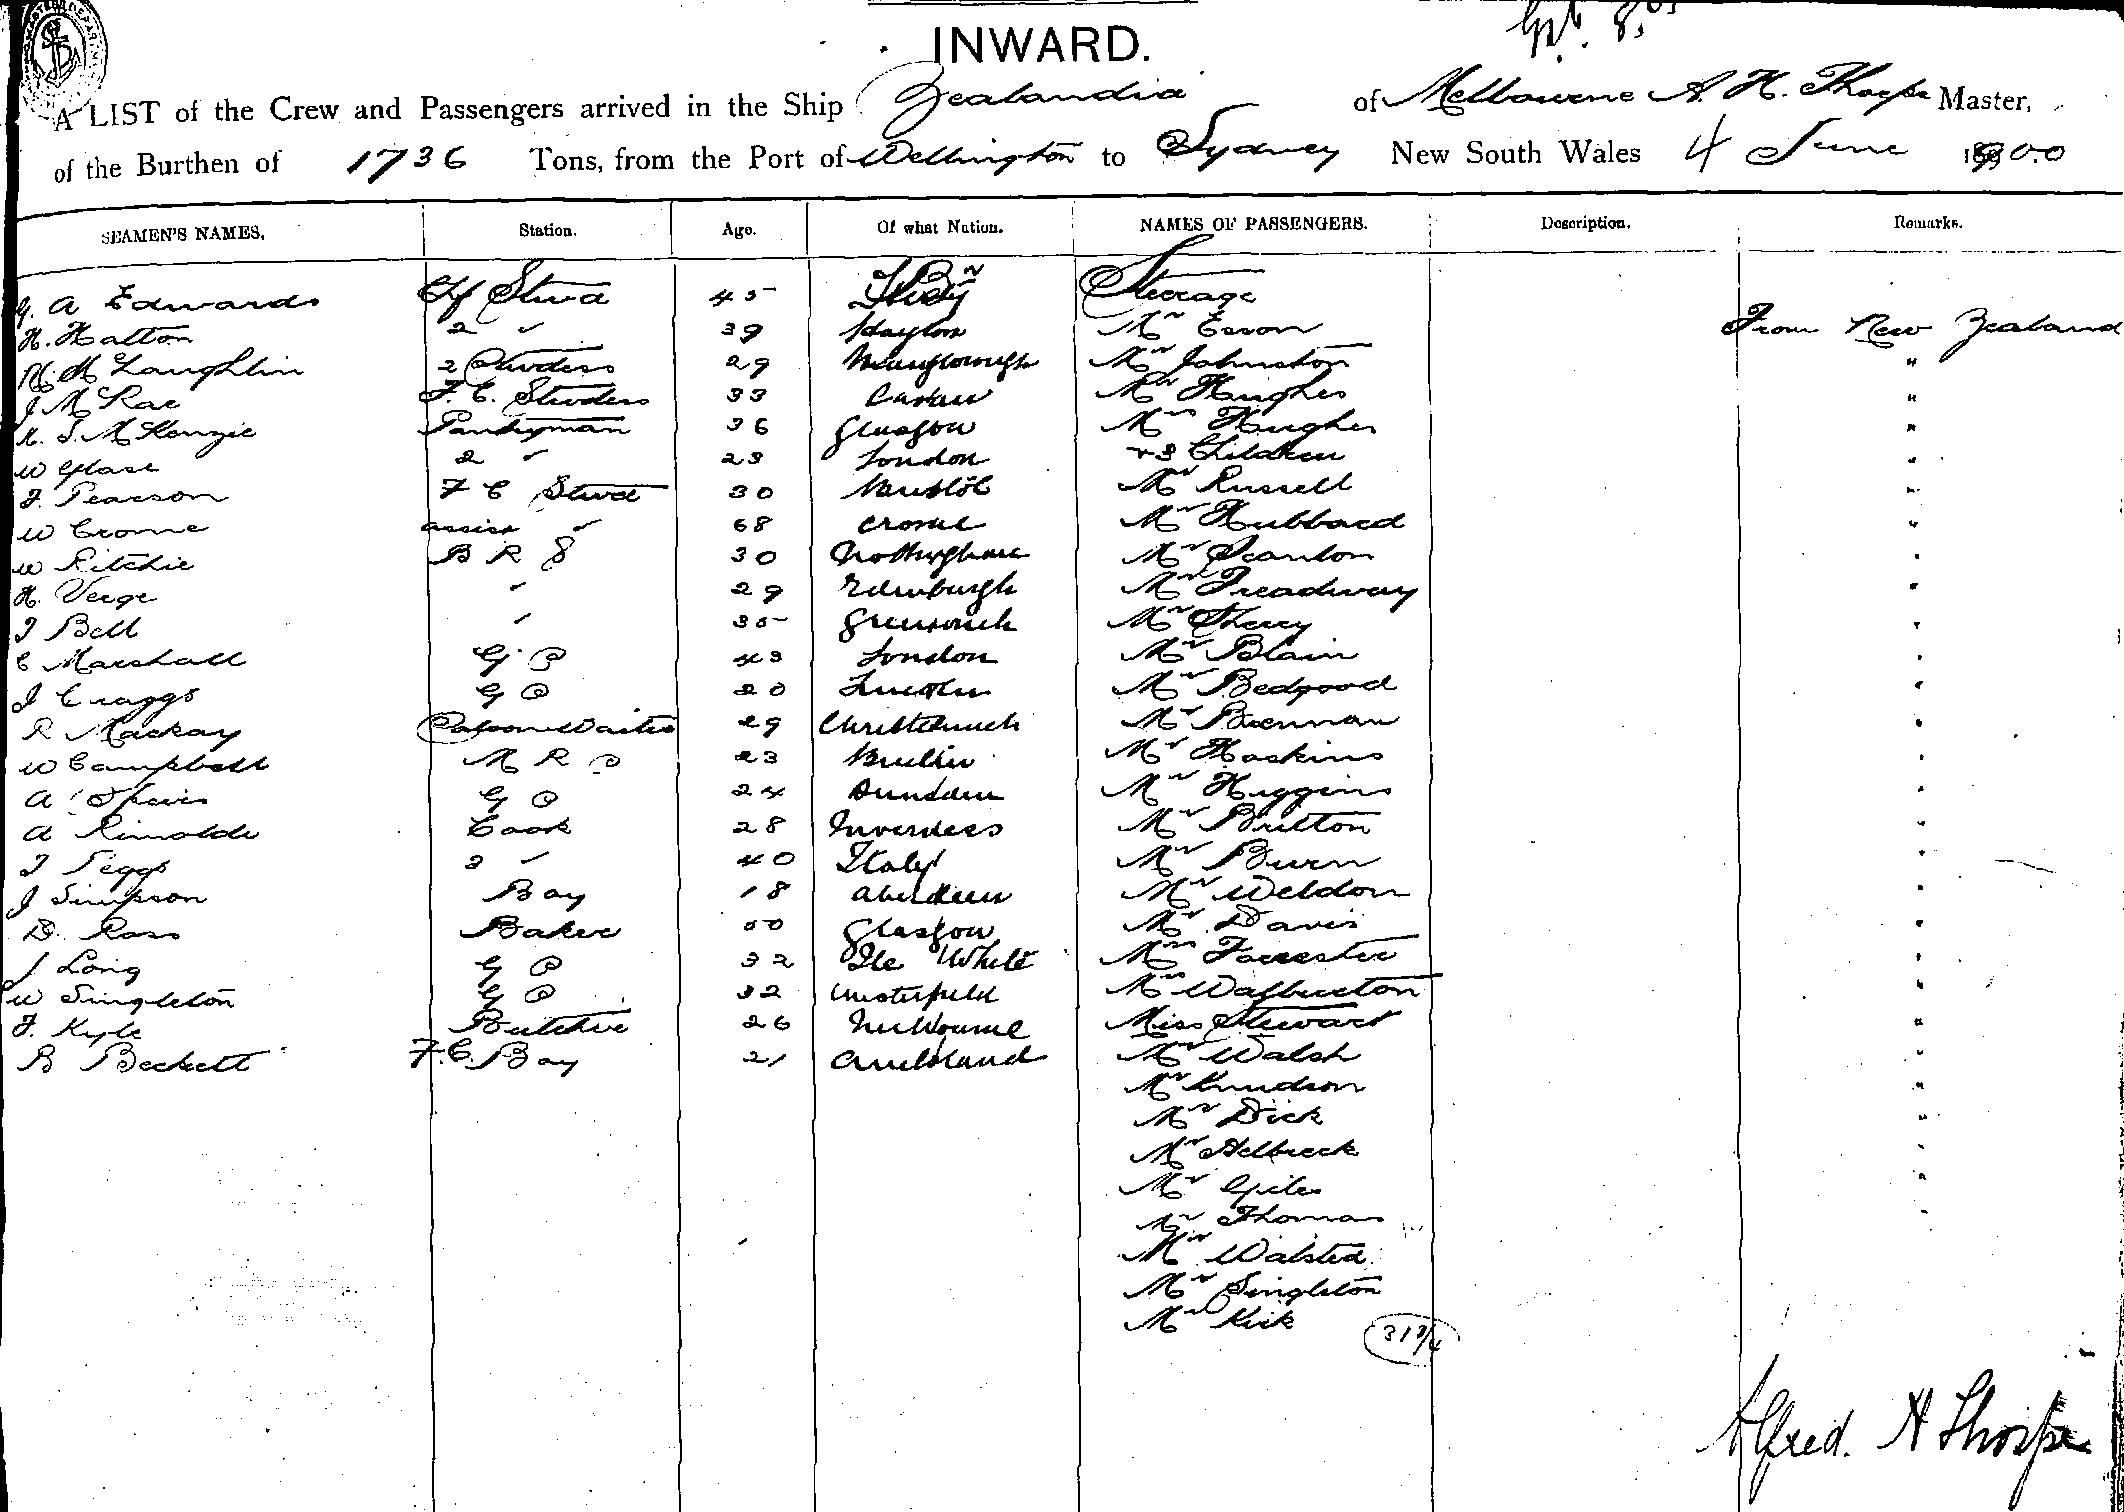 INWARD.
A LIST of the Crew and Passengers arrived in the Ship Zealandia of Melbourne A. H. Thorpe Master,
of the Burthen of 1736 Tons, from the Port of Wellington to Sydney New South Wales 4 June 1900
SEAMEN'S NAMES, Station. Age. Of what Nation. NAMES OF PASSENGERS. Description. Remarks.
G. A Edwards Chf Stwd 45 Steerage
H. Hatton 2 " 39 Mr Esson From New Zealand
McLaughlin 2 29 Mr Johnston "
J McRae F. C. 33 Mr Hughes "
McKenzie Pantryman 36 Glasgow Mrs Hughes "
W Glase 2 " 23 London & 3 Children "
F. Pearson F C Stwd 30 Bristol Mr Russell "
W Crome assist " 68 Mr Hubbard "
W Ritchie B R S 30 Nottingham Mr Scanlon "
H. Verge " 29 Edinburgh Mr Treadway "
J Bell " 35 Greenwich Mr Sherry "
C Marshall G S 43 London Mr Blain "
J Craggs G S 20 Lincoln Mr Bedgood "
R Mackay Saloon Waiter 29 Christchurch Mr Brennan "
W Campbell M R S 23 Mr Hoskins "
A G S 24 Dunedin Mr Huggins "
A Rinoldi Cook 28 Inverness Mr Britton "
J Peggs 2 " 40 Italy Mr Burn "
J Simpson Boy 18 Aberdeen Mr Weldon "
D. Ross Baker 50 Glasgow Mr Davis "
J Long G S 32 Mrs Forrester "
W Singleton G S 32 Chesterfield Mrs Warburton "
F. Kyle Butcher 26 Melbourne Miss Stewart "
B Beckett F. C. Boy 21 Auckland Mr Walsh "
Mr Knudson "
Mr Dick "
Mr Helbreck "
Mr Giles "
Mr Thomas "
Mr Walsted
Mr Singleton
Mr Kirk
Alfred. H Thorpe